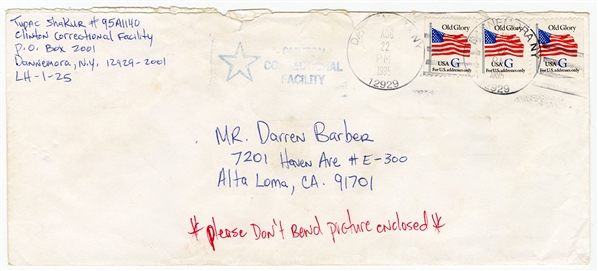 Tupac Shakur # 95A1140
Clinton Correctional Facility
P.O. Box 2001
Dannemora, N.Y. 12929-2001
LH-1-25
CLINTON
CORRECTIONAL
FACILITY
AUG
22
PM
1995
12929
Old Glory
USA G
For U.S. addresses only
Old Glory
USA G
For U.S. addresses only
Old Glory
USA G
For U.S. addresses only
MR. Darren Barber
7201 Haven Ave # E-300
Alta Loma, CA. 91701
* please Don't Bend picture enclosed *